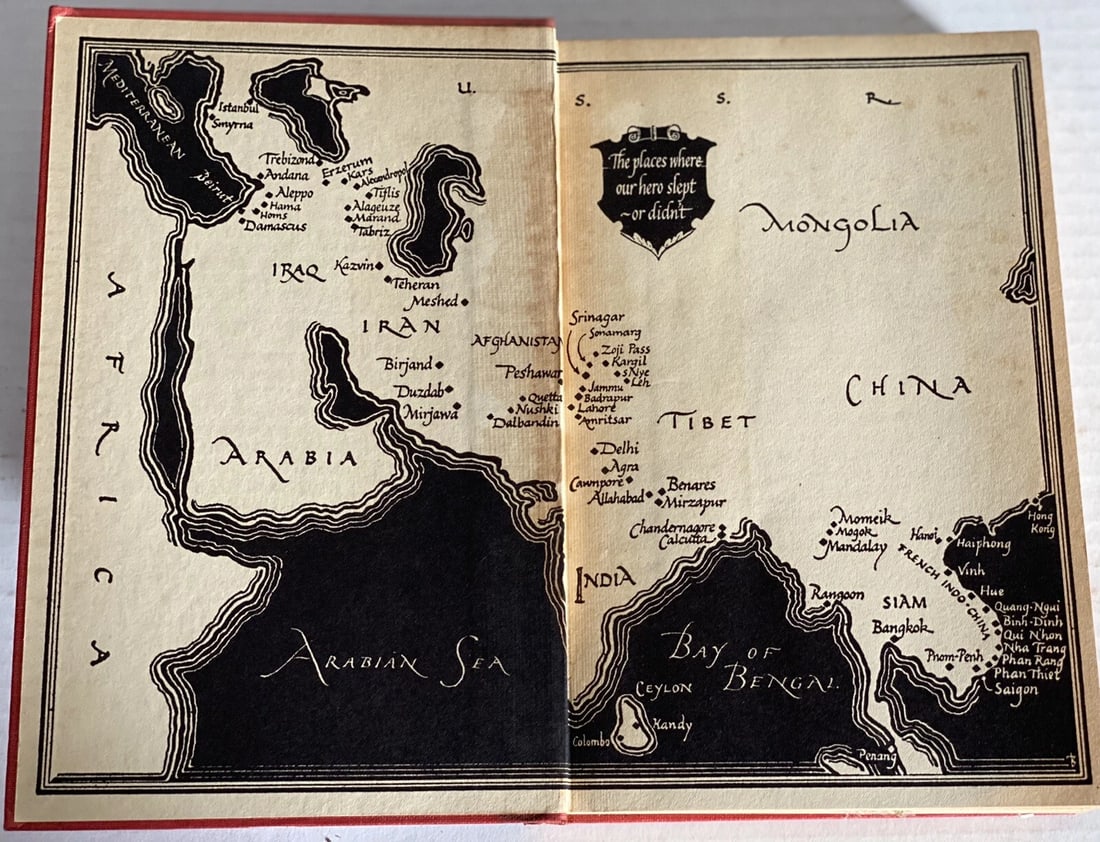 MEDITERRANEAN
Beirut
Istanbul
Smyrna
U. S. S. R.
The places where
our hero slept
~or didn't
MONGOLIA
Trebizond
Andana
Aleppo
Hama
Homs
Damascus
Erzerum
Kars
Alexandropol
Tiflis
Alageuze
Marand
Tabriz
IRAQ
Kazvin
Teheran
Meshed
IRAN
AFGHANISTAN
Birjand
Duzdab
Mirjawa
Peshawar
Quetta
Nushki
Dalbandin
Srinagar
Sonamarg
Zoji Pass
Kargil
sNye
Leh
Jammu
Badrapur
Lahore
Amritsar
CHINA
TIBET
AFRICA
ARABIA
Delhi
Agra
Cawnpore
Allahabad
Benares
Mirzapur
Chandernagore
Calcutta
INDIA
Momeik
Mogok
Mandalay
Rangoon
SIAM
Bangkok
Pnom-Penh
Hong
Kong
Hanoi
Haiphong
FRENCH INDO-CHINA
Vinh
Hue
Quang-Ngui
Binh-Dinh
Qui Nhon
Nha Trang
Phan Rang
Phan Thiet
Saigon
ARABIAN SEA
BAY OF
BENGAL
CEYLON
Kandy
Colombo
Penang